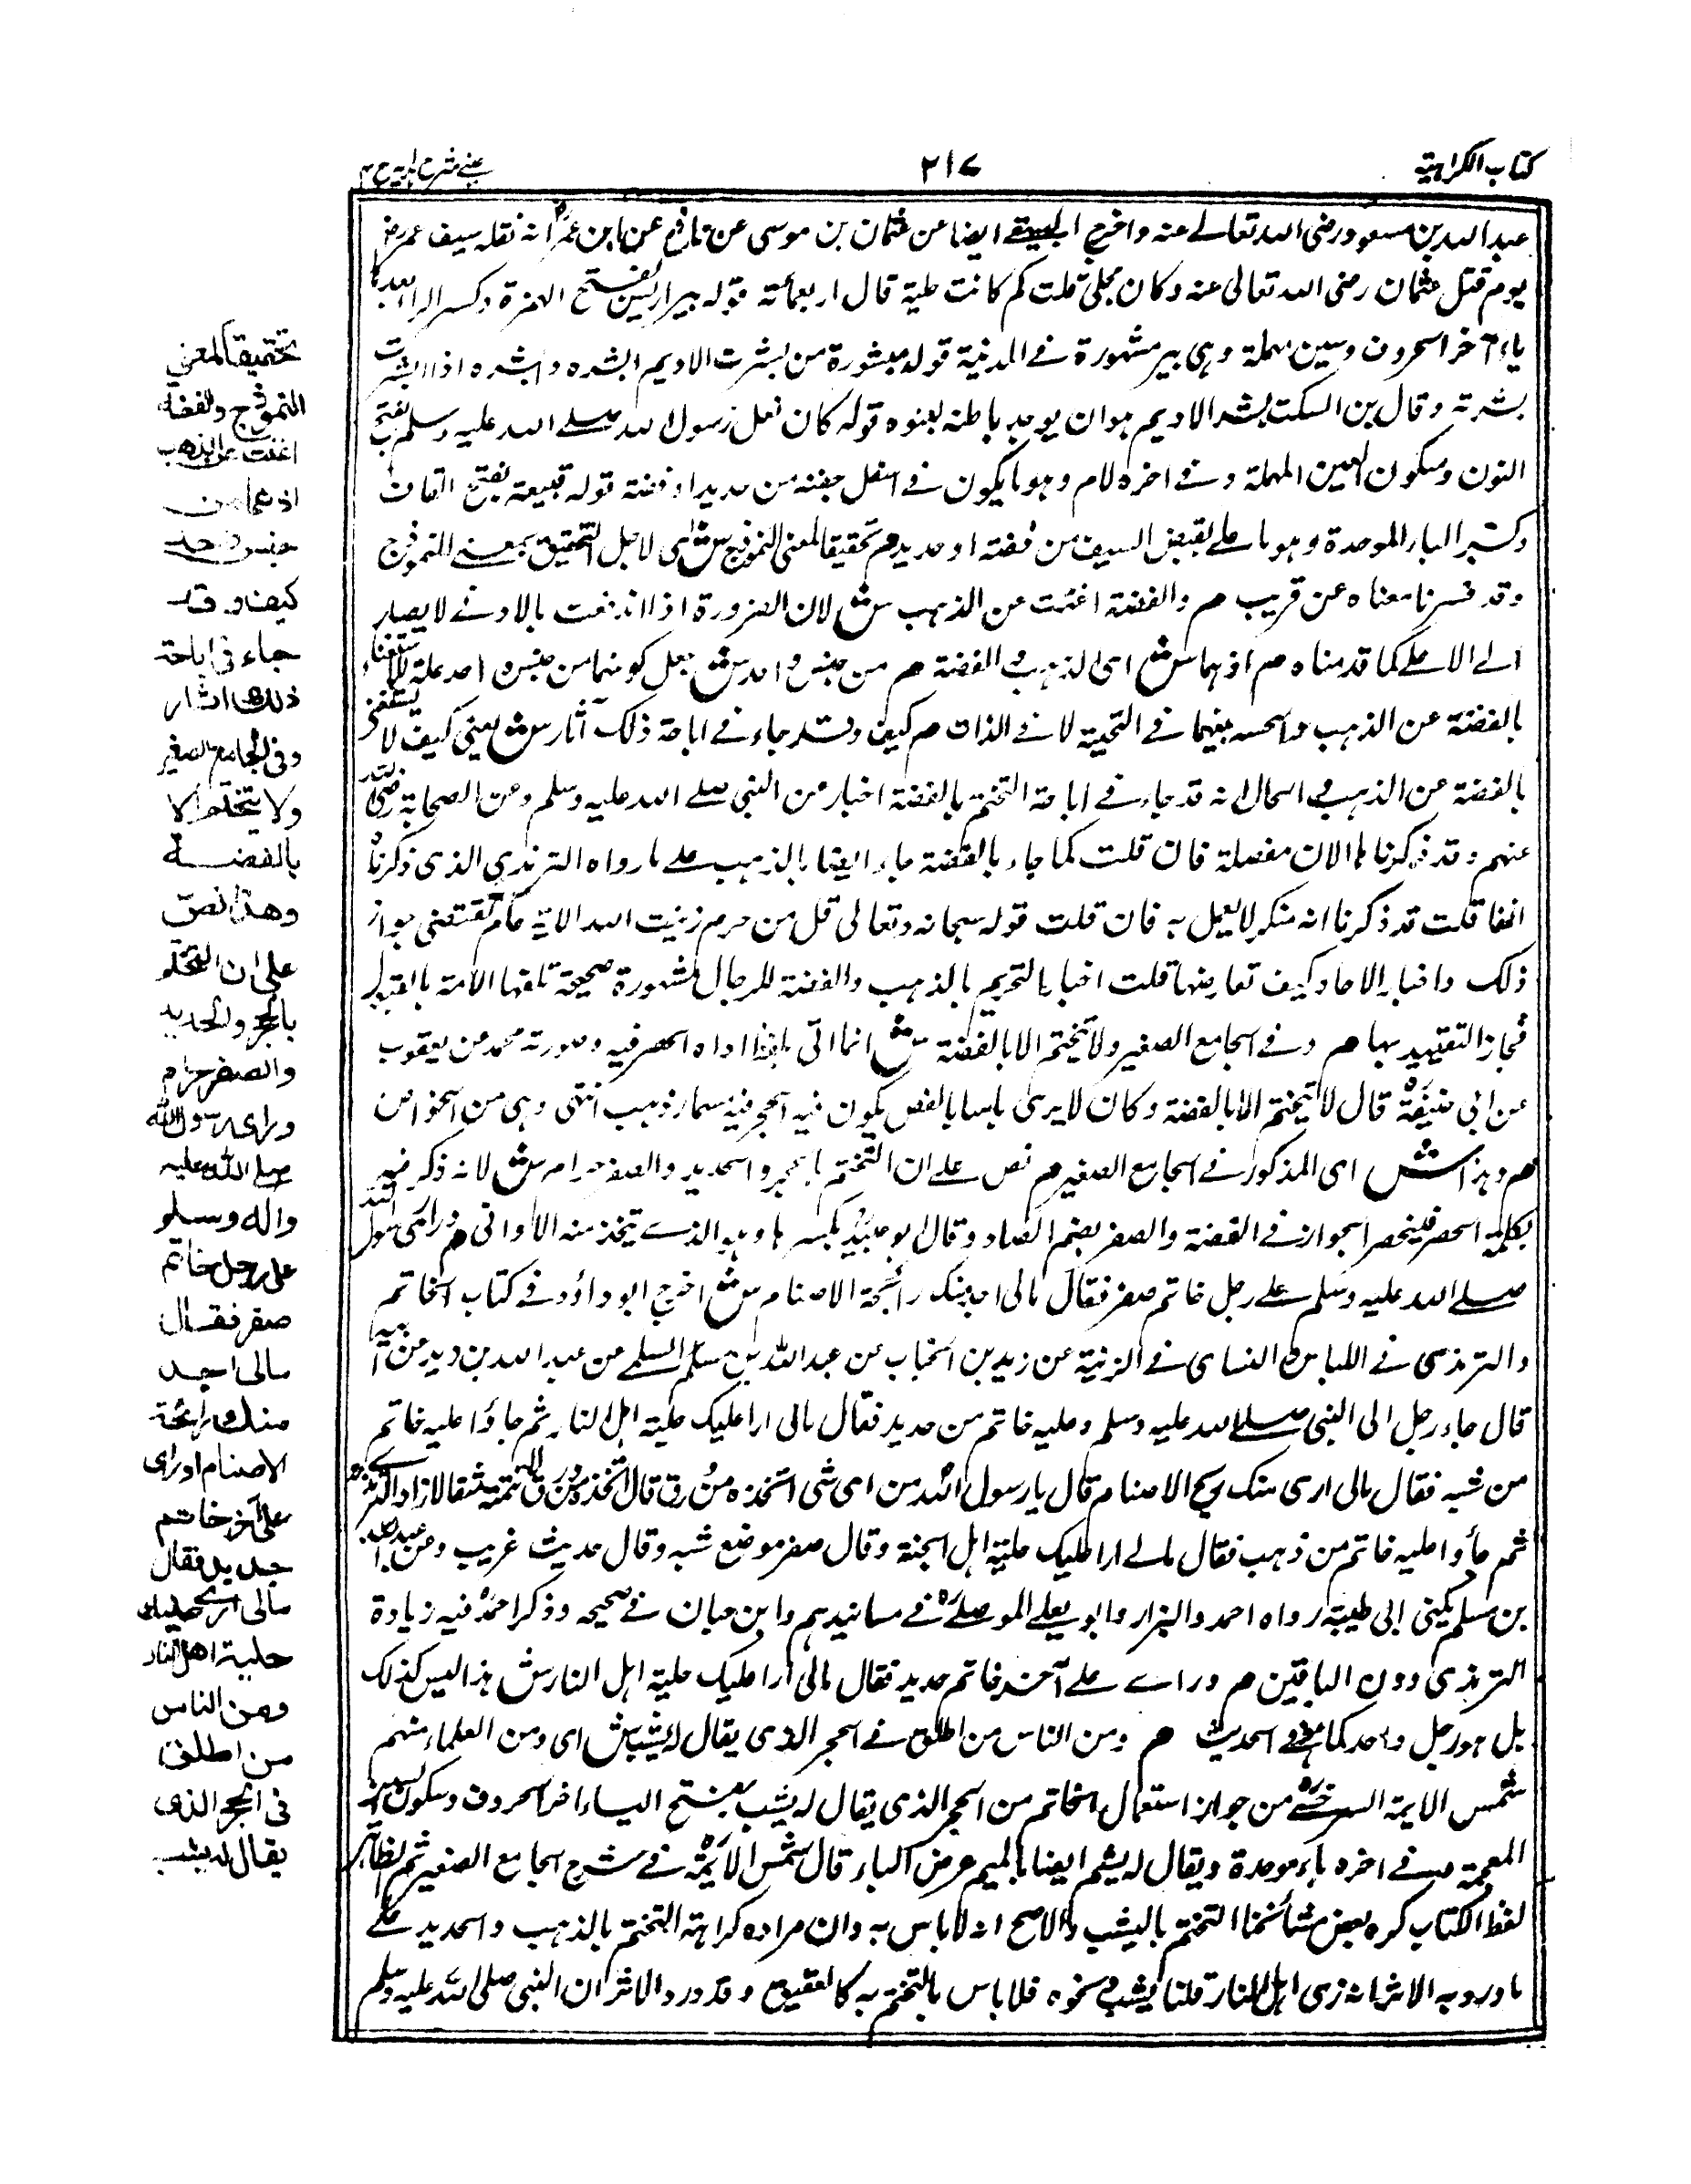 كتاب الكراهية
٢١٧
عينى شرح هداية ج ٤
عبد الله بن مسعود رضى الله تعالے عنه واخرج البيهقے ايضا عن عثمان بن موسى عن نافع عن ابن عمر انه تقلد سيف عمر رض
يوم قتل عثمان رضى الله تعالى عنه وكان محلى قلت كم كانت حلية قال اربعمائة قوله بير اريس بفتح الهمزة وكسر الراء بعدها
ياء آخر الحروف وسين مهملة وهى بير مشهورة فے المدينة قوله مبشورة من بشرت الاديم ابشره وابشره اذا ابشرت
بشرته وقال بن السكت بشر الاديم هو ان يوخذ باطنه قوله كان نعل رسول الله صلے الله عليه وسلم بفتح
النون وسكون العين المهملة وفے اخره لام وهو ما يكون فے اسفل جفنه من حديد او فضة قوله قبيعة بفتح القاف
وكسر الباء الموحدة وهو ما على مقبض السيف من فضة او حديد م تحقيقا لمعنى النموذج ش اى لاجل التحقيق بمعنے النموذج
وقد فسرنا معناه عن قريب م والفضة اغنت عن الذهب ش لان الضرورة اذا اندفعت بالادنے لا يصار
الے الاعلے كما قدمناه م اذ هما ش اى الذهب والفضة م من جنس واحد ش جعل كونهما من جنس احد علة للاستغناء
بالفضة عن الذهب والجنسية بينهما فے الثمنية لا فے الذات م كيف وقد جاء فے اباحة ذلك آثار ش يعنى كيف لا يستغنى
بالفضة عن الذهب والحال انه قد جاء فے اباحة التختم بالفضة اخبار عن النبى صلے الله عليه وسلم وعن الصحابة رضى الله
عنهم وقد ذكرناها الان مفصلة فان قلت كما جاء بالفضة جاء ايضا بالذهب علے ما رواه الترمذى الذى ذكرناه
انفا قلت قد ذكرنا انه منكر لا يعمل به فان قلت قوله سبحانه وتعالى قل من حرم زينت الله الاية عام يقتضى جواز
ذلك واخبار الاحاد كيف تعارضها قلت اخبار التحريم بالذهب والفضة للرجال مشهورة صحيحة تلقها الامة بالقبول
فجاز التقييد بها م وفے الجامع الصغير ولا يتختم الا بالفضة ش انما اتى بلفظ اداه الحصر فيه وصورته محمد عن يعقوب
عن ابى حنيفة قال لا يتختم الا بالفضة وكان لا يرى باسا بالفص يكون فيه الحجر فيه مسمار ذهب انتهى وهى من الخواص
م وهذا ش اى المذكور فے الجامع الصغير م نص علے ان التختم بالحجر والحديد والصفر حرام ش لانه ذكر فيه
بكلمة الحصر فينحصر الجواز فے الفضة والصفر بضم الصاد وقال ابو عبيد بكسرها وهو الذے يتخذ منه الاوانى م وراى رسول الله
صلے الله عليه وسلم علے رجل خاتم صفر فقال مالى اجد منك رائحة الاصنام ش اخرج ابو داؤد فے كتاب الخاتم
والترمذى فے اللباس والنساى فے الزينة عن زيد بن الحباب عن عبد الله بن مسلم السلمے عن عبد الله بن بريد عن ابيه
قال جاء رجل الى النبى صلے الله عليه وسلم وعليه خاتم من حديد فقال مالى ارا عليك حلية اهل النار ثم جاؤا عليه خاتم
من شبه فقال مالى ارى منك ريح الاصنام قال يا رسول الله من اى شى اتخذه من ورق قال اتخذه من ورق ولا تتمه مثقالا زاد الترمذے
ثم جاؤا عليه خاتم من ذهب فقال مالے ارا عليك حلية اهل الجنة وقال صفر موضع شبه وقال حديث غريب وعن عبد الله
بن مسلم يكنى ابى طيبة رواه احمد والبزار وابو يعلے الموصلے فے مسانيدهم وابن حبان فے صحيحه وذكر احمد فيه زيادة
الترمذى دون الباقين م وراے علے آخر خاتم حديد فقال مالى ارا عليك حلية اهل النار ش هذا ليس كذلك
بل هو رجل واحد كما فى الحديث م ومن الناس من اطلق فے الحجر الذى يقال له يشب ش اى ومن العلماء منهم
شمس الايمة السرخسے من جواز استعمال الخاتم من الحجر الذى يقال له يشب بفتح الياء اخر الحروف وسكون الشين
المعجمة وفے اخره باء موحدة ويقال له يشم ايضا بالميم عوض الباء قال شمس الائمة فے شرح الجامع الصغير ثم لظاهر
لفظ الكتاب كره بعض مشائخنا التختم باليشب والاصح انه لا باس به وان مراده كراهة التختم بالذهب والحديد علے
ما ورد به الاثر انه زى اهل النار قلنا يشب ونحوه فلا باس بالتختم به كالعقيق وقد ورد الاثر ان النبى صلى الله عليه وسلم
تحقيقا لمعنى
النموذج والفضة
اغنت عن الذهب
اذ هما من
جنس واحد
كيف وقد
جاء فى اباحة
ذلك اثار
وفى الجامع الصغير
ولا يتختم الا
بالفضة
وهذا نص
على ان التختم
بالحجر والحديد
والصفر حرام
وراى رسول الله
صلے الله عليه
واله وسلم
على رجل خاتم
صفر فقال
مالى اجد
منك رائحة
الاصنام وراى
على آخر خاتم
حديد فقال
مالى ارى عليك
حلية اهل النار
ومن الناس
من اطلق
فى الحجر الذى
يقال له يشب